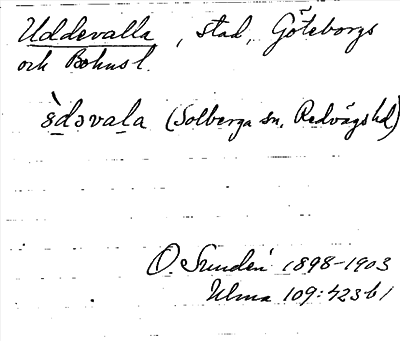 Uddevalla, stad, Göteborgs
och Bohusl.
(Solberga sn, Redvägs hd)
O. Sundén 1898-1903
Ulma 109:423 b 1